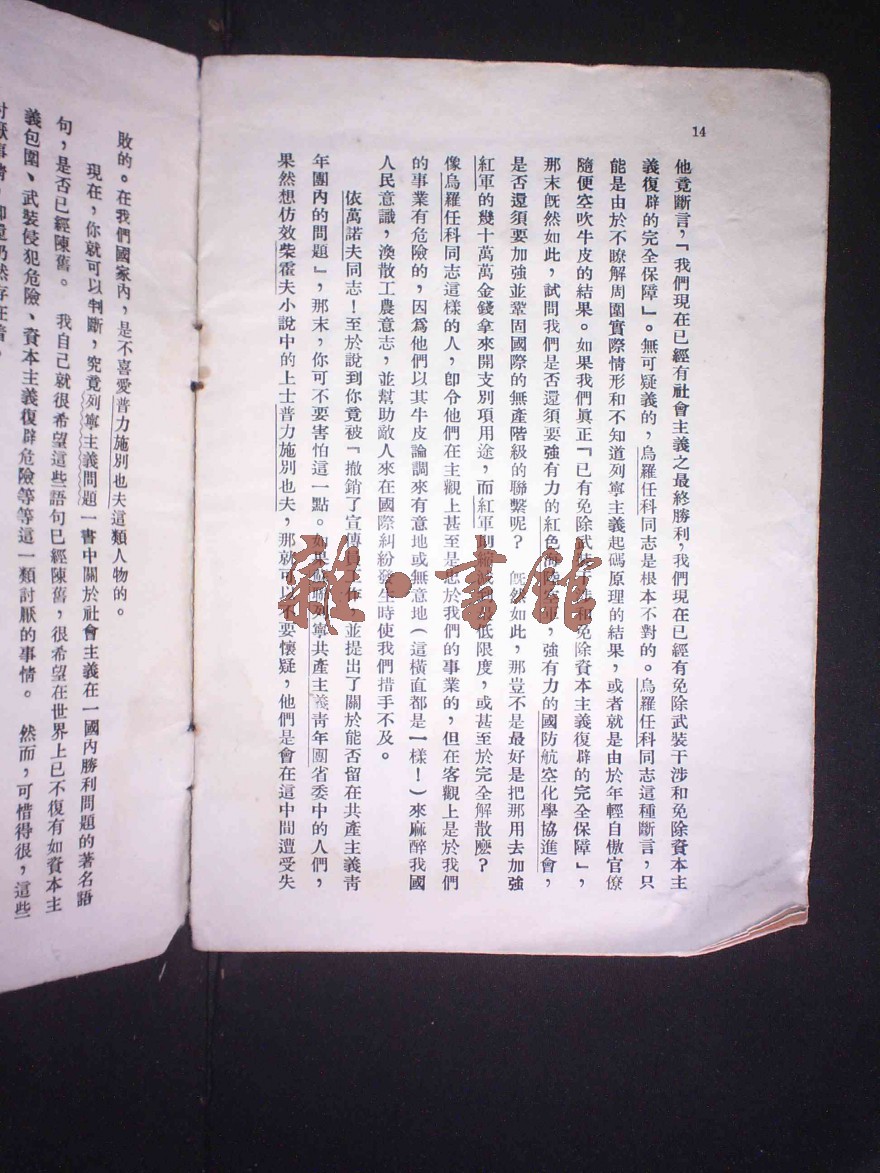 14
他竟斷言，「我們現在已經有社會主義之最終勝利，我們現在已經有免除武裝干涉和免除資本主
義復辟的完全保障」。無可疑義的，烏羅任科同志是根本不對的。烏羅任科同志這種斷言，只
能是由於不瞭解周圍實際情形和不知道列寧主義起碼原理的結果，或者就是由於年輕自傲官僚
隨便空吹牛皮的結果。如果我們眞正「已有免除武裝干涉和免除資本主義復辟的完全保障」，
那末旣然如此，試問我們是否還須要強有力的紅色海陸空軍，強有力的國防航空化學協進會，
是否還須要加強並鞏固國際的無產階級的聯繫呢？旣然如此，那豈不是最好是把那用去加強
紅軍的幾十萬萬金錢拿來開支別項用途，而紅軍則縮減到最低限度，或甚至於完全解散麽？
像烏羅任科同志這樣的人，卽令他們在主觀上甚至是忠於我們的事業的，但在客觀上是於我們
的事業有危險的，因爲他們以其牛皮論調來有意地或無意地（這橫直都是一樣！）來麻醉我國
人民意識，渙散工農意志，並幫助敵人來在國際糾紛發生時使我們措手不及。
依萬諾夫同志！至於說到你竟被「撤銷了宣傳員工作，並提出了關於能否留在共產主義靑
年團內的問題」，那末，你可不要害怕這一點。如果蘇聯列寧共產主義靑年團省委中的人們，
果然想仿效柴霍夫小說中的上士普力施別也夫，那就可以不要懷疑，他們是會在這中間遭受失
敗的。在我們國家內，是不喜愛普力施別也夫這類人物的。
現在，你就可以判斷，究竟列寧主義問題一書中關於社會主義在一國內勝利問題的著名語
句，是否已經陳舊。我自己就很希望這些語句已經陳舊，很希望在世界上已不復有如資本主
義包圍、武裝侵犯危險、資本主義復辟危險等等這一類討厭的事情。然而，可惜得很，這些
討厭事情，却還仍然存在着。
雜·書館